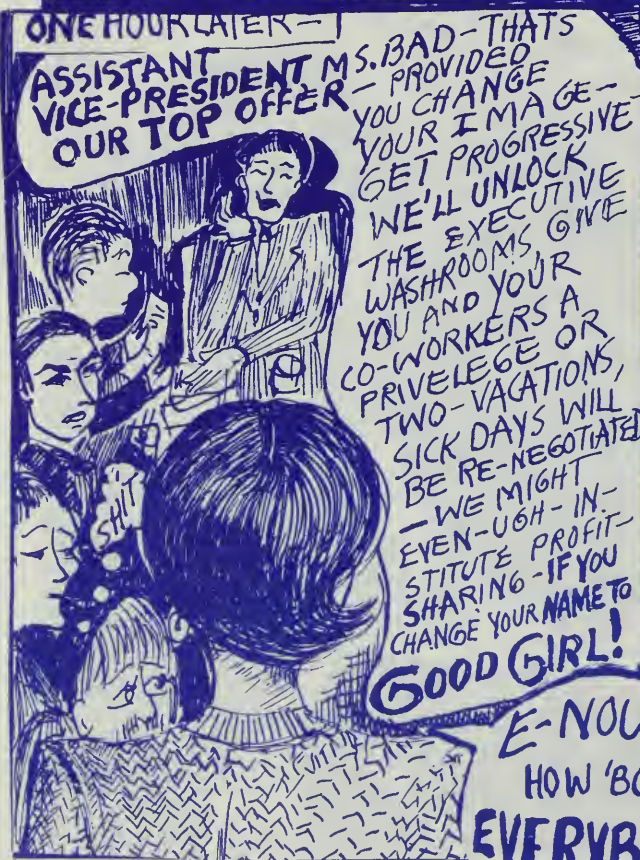 ONE HOUR LATER—
ASSISTANT
VICE-PRESIDENT MS. BAD-THATS
OUR TOP OFFER — PROVIDED
YOU CHANGE
YOUR IMAGE—
GET PROGRESSIVE
WE'LL UNLOCK
THE EXECUTIVE
WASHROOMS, GIVE
YOU AND YOUR
CO-WORKERS A
PRIVELEGE OR
TWO-VACATIONS,
SICK DAYS WILL
BE RE-NEGOTIATED
—WE MIGHT
EVEN-UGH-IN-
STITUTE PROFIT-
SHARING-IF YOU
CHANGE YOUR NAME TO
GOOD GIRL!
SHIT
E-NOU
HOW 'BO
EVERYB